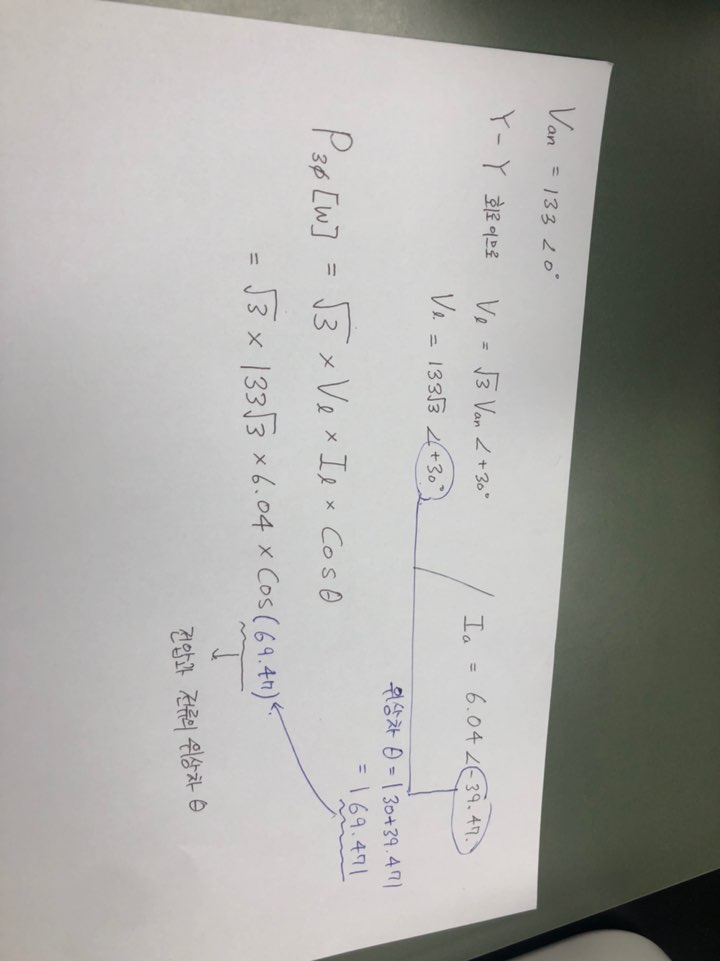 Van = 133 ∠0°
Y-Y 회로이므로 Vℓ = √3 Van ∠+30°
Vℓ = 133√3 ∠+30°
/ Ia = 6.04 ∠-39.47.
위상차 θ = |30+39.47|
= |69.47|
P3ϕ [W] = √3 × Vℓ × Iℓ × Cosθ
= √3 × 133√3 × 6.04 × Cos(69.47).
전압과 전류의 위상차 θ